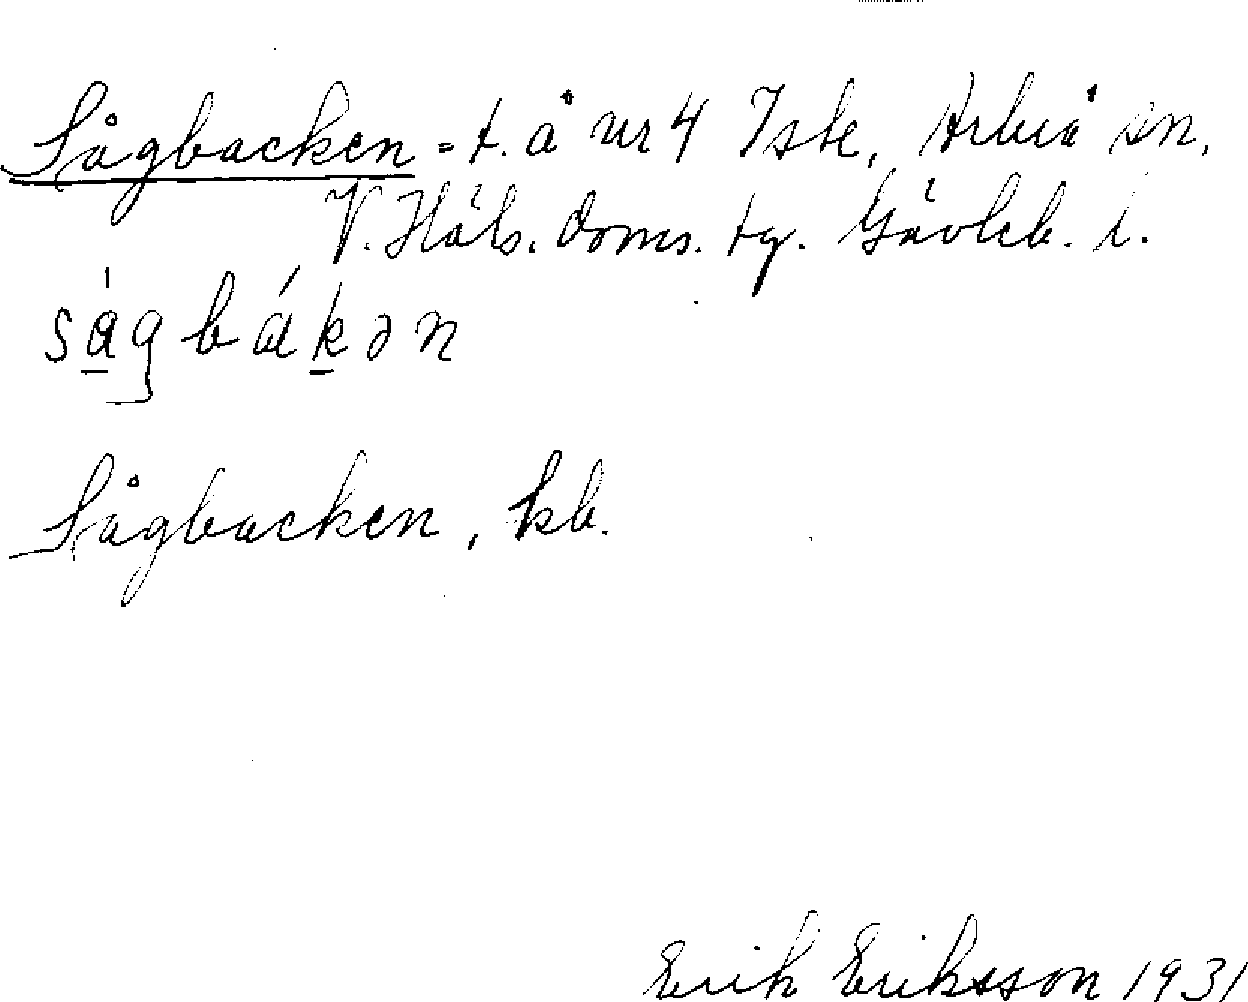 Sågbacken = t. å nr 4 Iste, Arbrå sn,
V. Häls. doms. tg. Gävleb. l.
ságbákən
Sågbacken, kb.
Erik Eriksson 1931